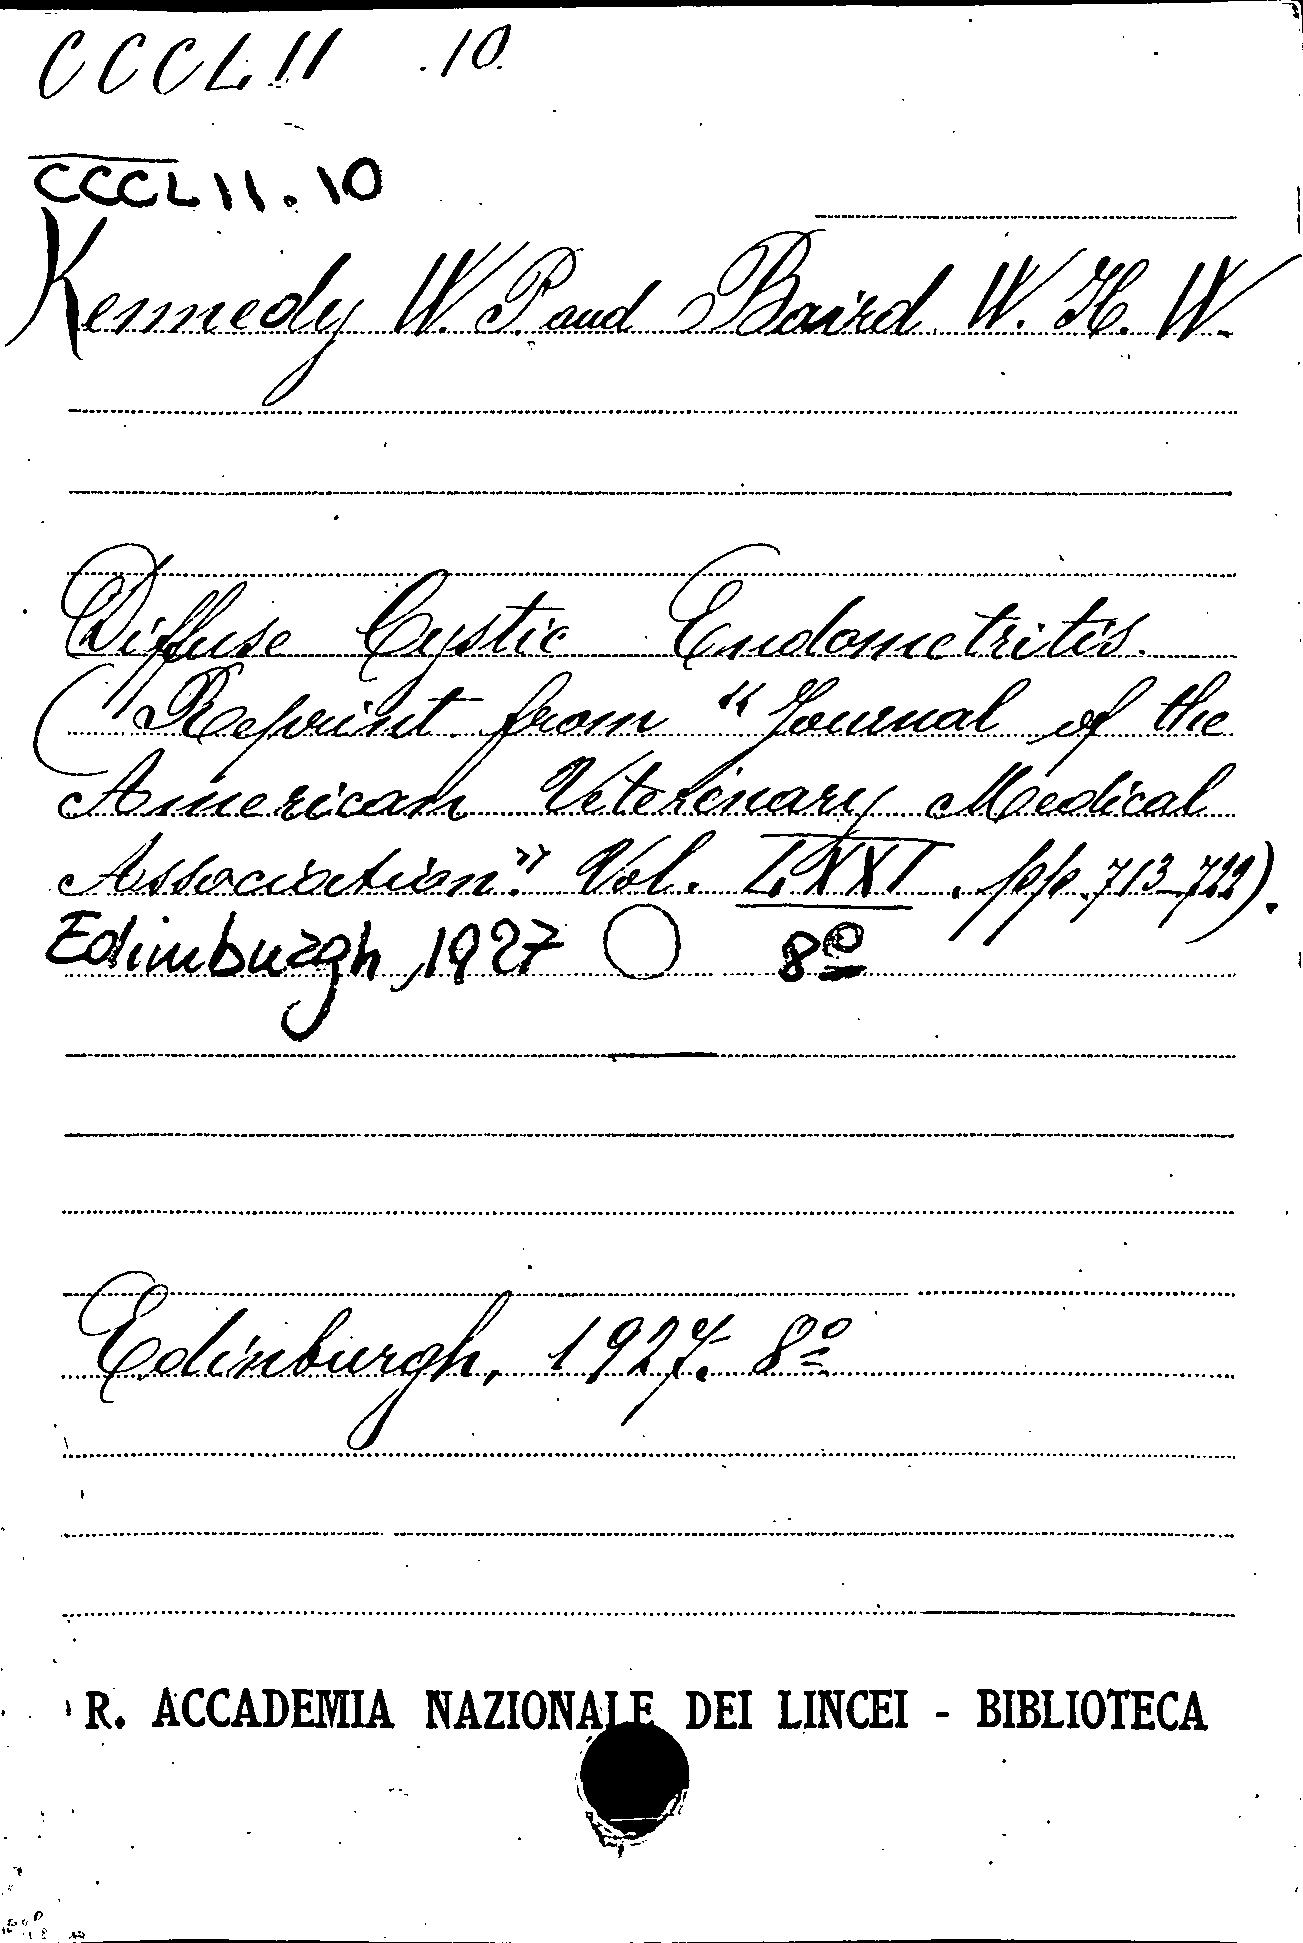 CCCL11 .10
CCCL11.10
Kennedy W. P. and Baird W. H. W.
Diffuse Cystic Endometritis.
(Reprint from "Journal of the
American Veterinary Medical
Association." Vol. LXXI. pp. 713-722).
Edimburgh, 1927 8º
Edinburgh, 1927. 8º
R. ACCADEMIA NAZIONALE DEI LINCEI - BIBLIOTECA